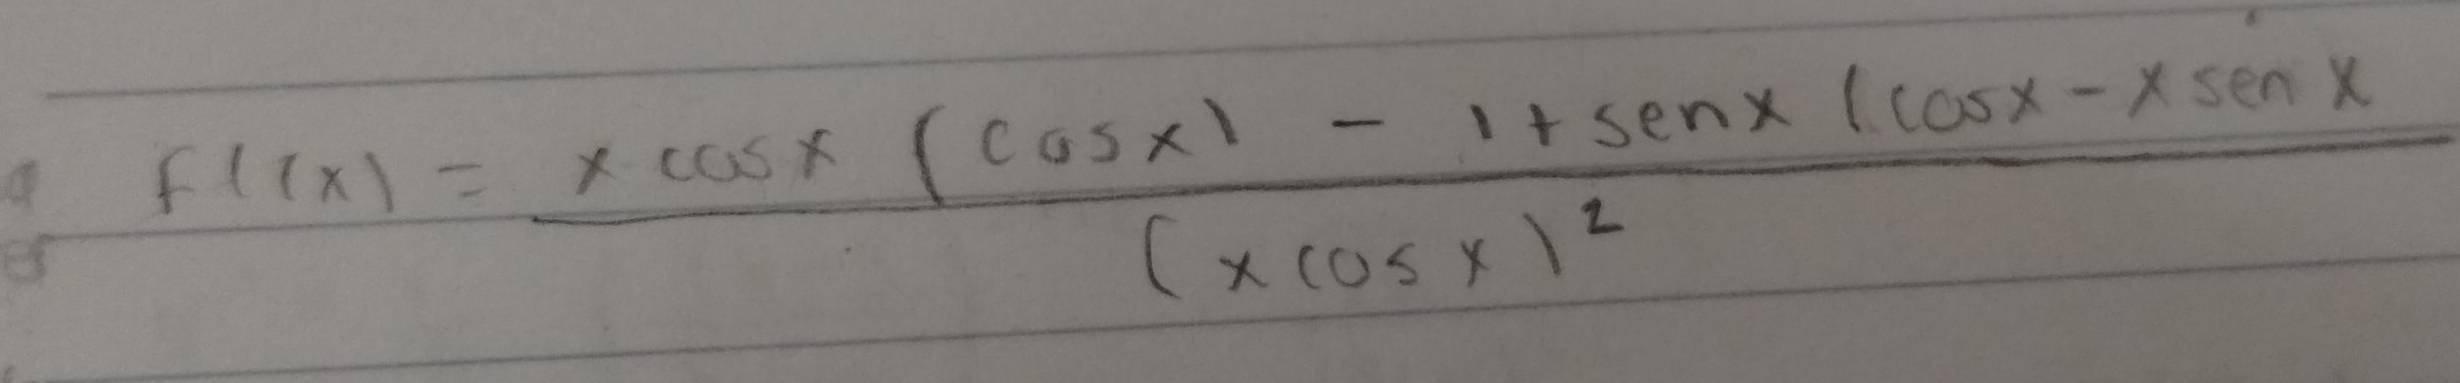 f'(x) = x cos x (cos x) - 1 + sen x (cos x - x sen x
(x cos x)²